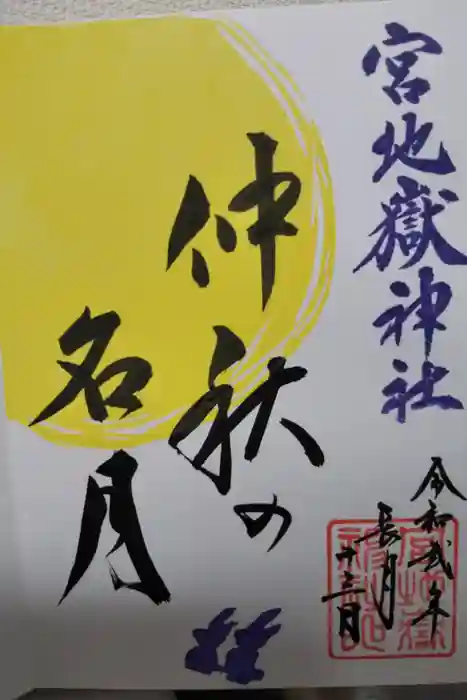 宮地嶽神社
仲秋の
名月
令和弐年
長月
十三日